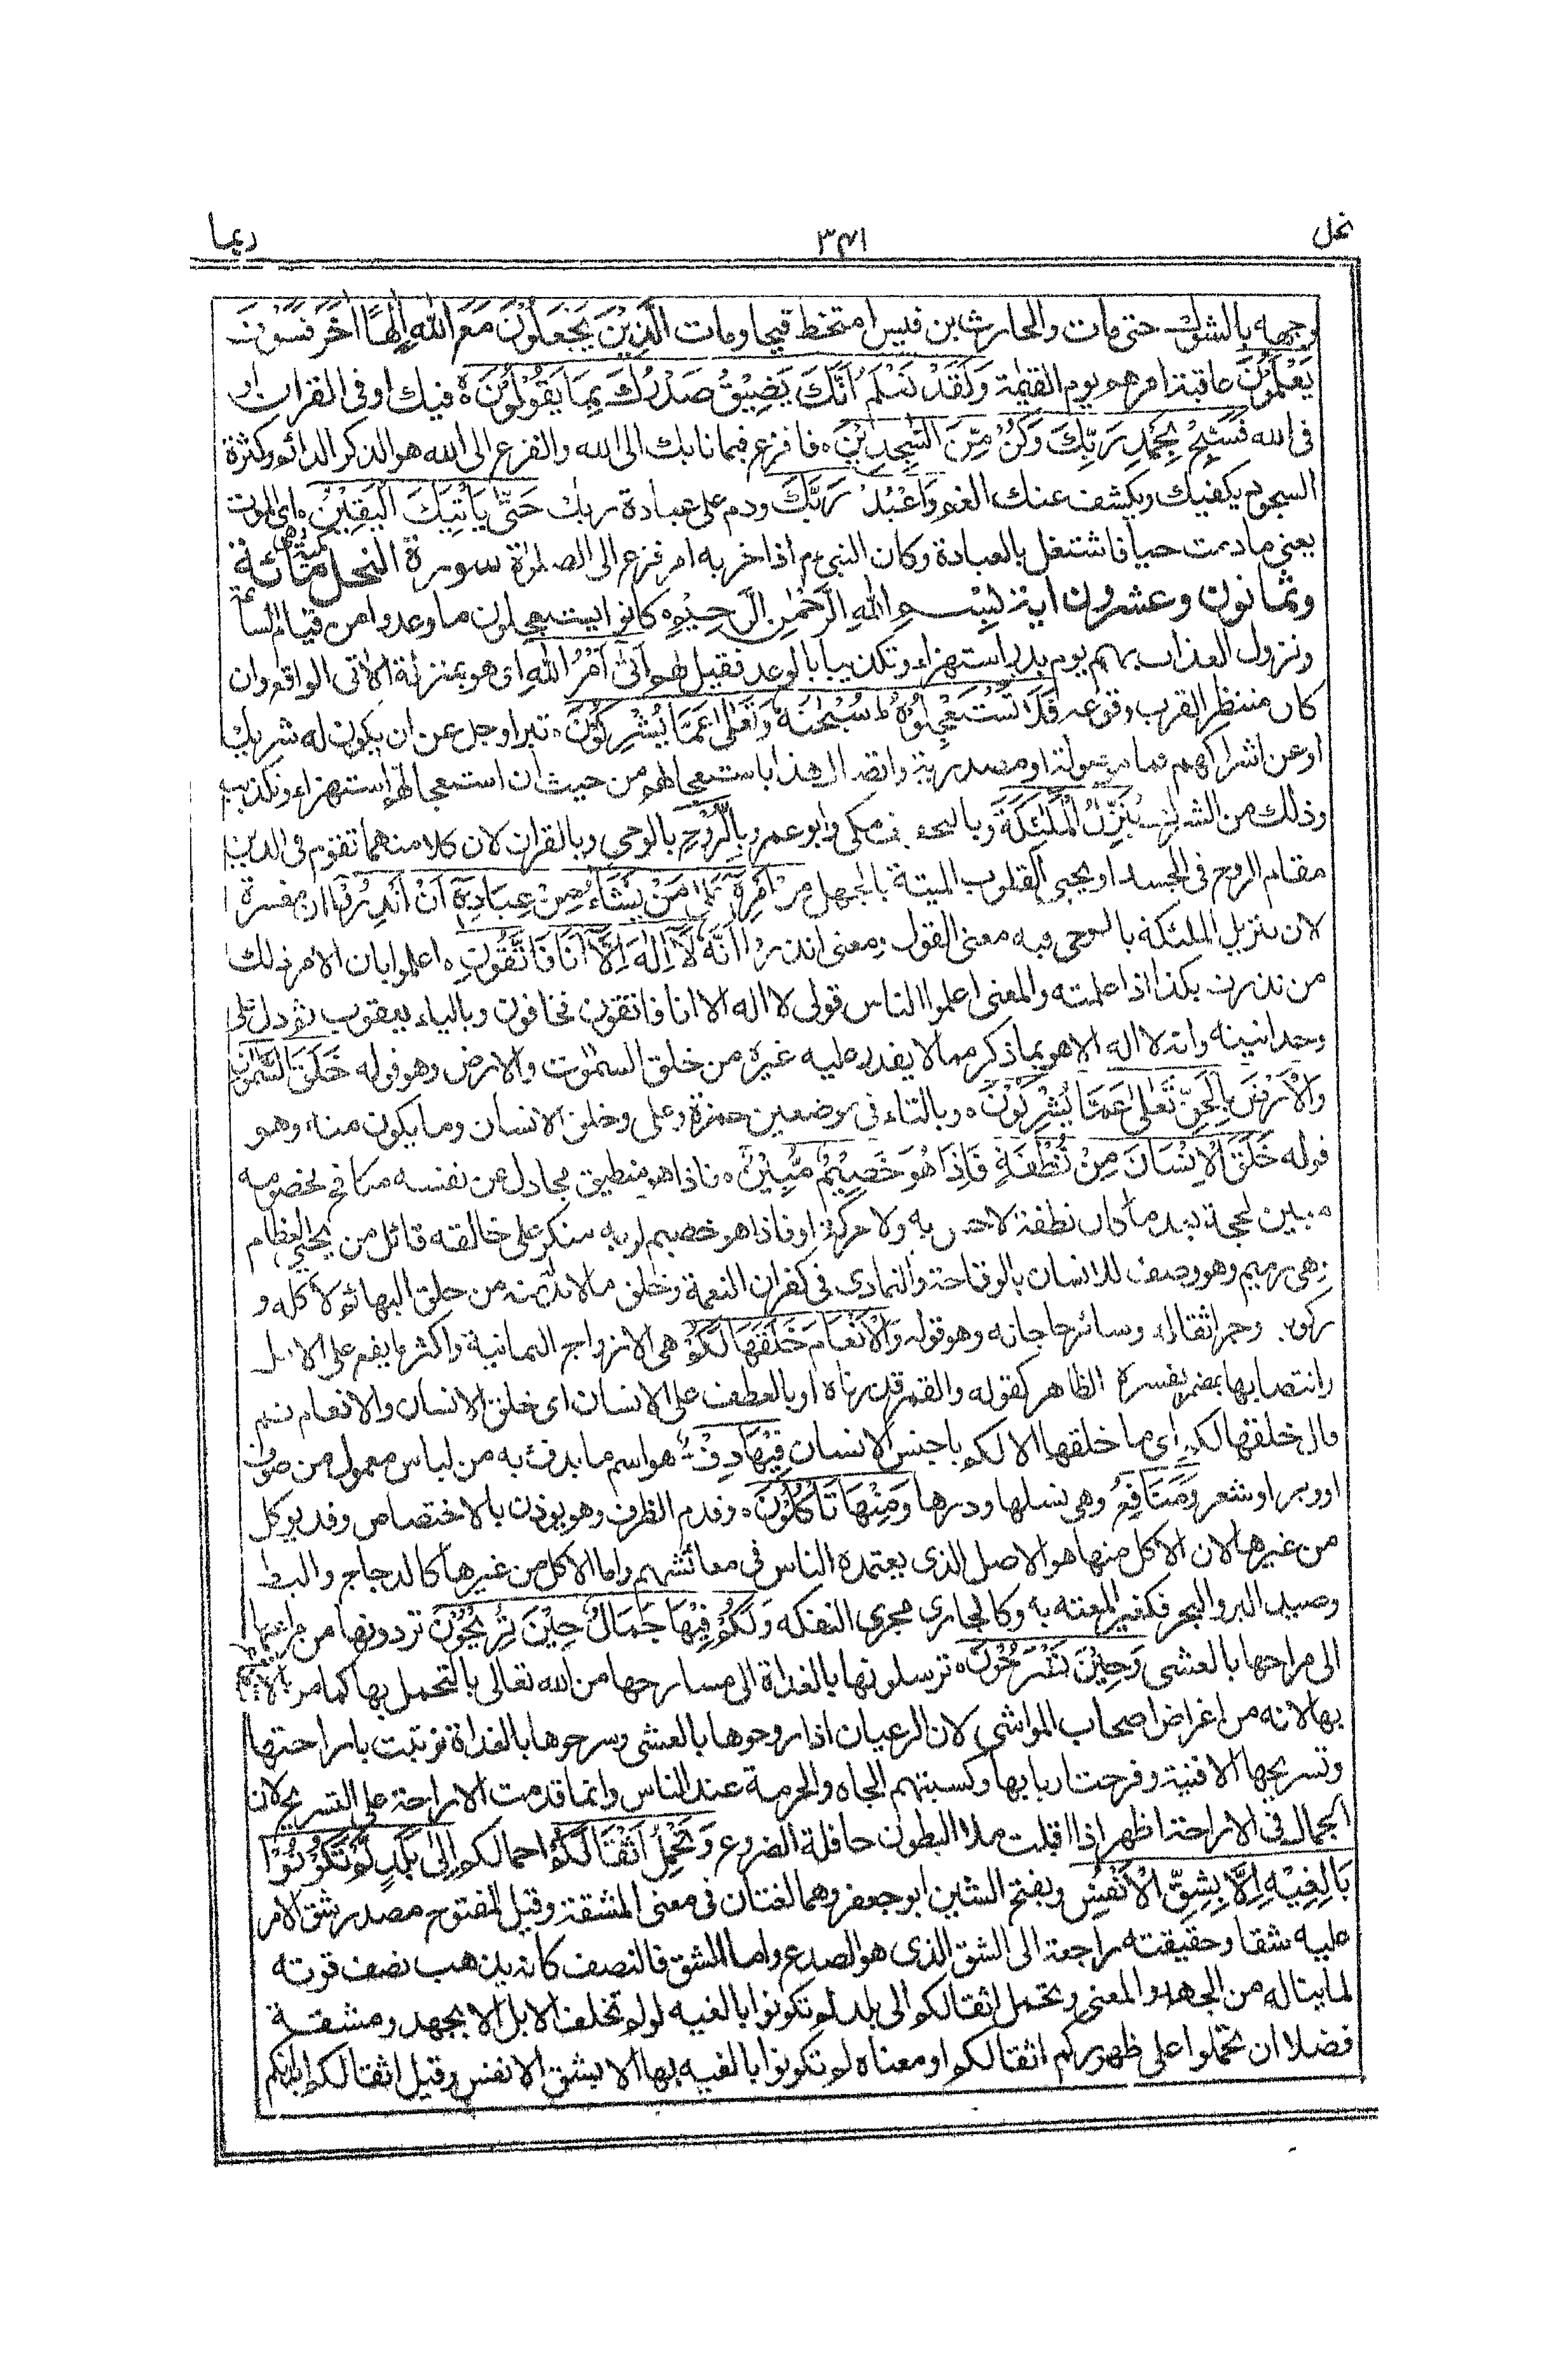 نحل
٣٤١
ربما
وجهه بالشوك حتى مات والحارث بن قيس امتخط قيحا ومات الَّذِيْنَ يَجْعَلُوْنَ مَعَ اللّٰهِ اِلٰهًا اٰخَرَ فَسَوْفَ
يَعْلَمُوْنَ عاقبة امرهم يوم القيٰمة وَلَقَدْ نَعْلَمُ اَنَّكَ يَضِيْقُ صَدْرُكَ بِمَا يَقُوْلُوْنَ ه فيك او فى القران او
فى الله فَسَبِّحْ بِحَمْدِ رَبِّكَ وَكُنْ مِّنَ السّٰجِدِيْنَ ه فافزع فيما نابك الى الله والفزع الى الله هو الذكر الدائم وكثرة
السجود يكفيك ويكشف عنك الغم وَاعْبُدْ رَبَّكَ ودم على عبادة ربك حَتّٰى يَاْتِيَكَ الْيَقِيْنُ ه اى الموت
يعنى مادمت حيا فاشتغل بالعبادة وكان النبى ءم اذا حزبه امر فزع الى الصلوة سورة النحل مكية وهى مائة
وثمانون وعشرون اية بِسْمِ اللّٰهِ الرَّحْمٰنِ الرَّحِيْمِ ه كانوا يستعجلون ما وعدوا من قيام الساعة
ونزول العذاب بهم يوم بدر استهزاء وتكذيبا بالوعد فقيل لهم اَتٰى اَمْرُ اللّٰهِ اى هو بمنزلة الاتى الواقع وان
كان منتظر القرب وقوعه فَلَا تَسْتَعْجِلُوْهُ ط سُبْحٰنَهٗ وَتَعٰلٰى عَمَّا يُشْرِكُوْنَ ه تبرا وجل عن ان يكون له شريك
او عن اشراكهم فما موصولة او مصدرية واتصال هذا باستعجالهم من حيث ان استعجالهم استهزاء وتكذيب
وذلك من الشرك يُنَزِّلُ الْمَلٰٓئِكَةَ وبالتخفيف مكى وابو عمرو بِالرُّوْحِ بالوحى وبالقران لان كلا منهما تقوم فى الدين
مقام الروح فى الجسد او يحيى القلوب الميتة بالجهل مِنْ اَمْرِهٖ عَلٰى مَنْ يَّشَآءُ مِنْ عِبَادِهٖٓ اَنْ اَنْذِرُوْٓا ان مفسرة
لان تنزيل الملئكة بالوحى فيه معنى القول ومعنى انذروا اَنَّهٗ لَآ اِلٰهَ اِلَّآ اَنَا فَاتَّقُوْنِ ه اعلموا بان الامر ذلك
من نذرت بكذا اذا علمته والمعنى اعلموا الناس قولى لا اله الا انا فاتقون فخافون وبالياء يعقوب ثم دل على
وحدانيته وانه لا اله الا هو بما ذكر مما لا يقدر عليه غيره من خلق السموت والارض وهو قوله خَلَقَ السَّمٰوٰتِ
وَالْاَرْضَ بِالْحَقِّ تَعٰلٰى عَمَّا يُشْرِكُوْنَ ه وبالتاء فى موضعين حمزة وعلى وخلق الانسان وما يكون منه وهو
قوله خَلَقَ الْاِنْسَانَ مِنْ نُّطْفَةٍ فَاِذَا هُوَ خَصِيْمٌ مُّبِيْنٌ ه فاذا هو منطيق مجادل عن نفسه مكافح لخصومه
مبين لحجة بعد ما كان نطفة لا حس به ولا حركة او فاذا هو خصيم لربه منكر على خالقه قائل من يحيى العظام
وهى رميم وهو وصف للانسان بالوقاحة والتمادى فى كفران النعمة وخلق ما لا بد منه من خلق البهائم لاكله و
ركوبه وحمل اثقاله وسائر حاجاته وهو قوله وَالْاَنْعَامَ خَلَقَهَا لَكُمْ هى الازواج الثمانية واكثر ما يقع على الابل
وانتصابها بمضمر يفسره الظاهر كقوله والقمر قدرناه او بالعطف على الانسان اى خلق الانسان والانعام ثم
قال خلقها لكم اى ما خلقها الا لكم يا جنس الانسان فِيْهَا دِفْءٌ هو اسم ما يدفأ به من لباس معمول من صوف
او وبر او شعر وَّمَنَافِعُ وهى نسلها ودرها وَمِنْهَا تَاْكُلُوْنَ ه وقدم الظرف وهو يوذن بالاختصاص وقد يوكل
من غيرها لان الاكل منها هو الاصل الذى يعتمده الناس فى معائشهم واما الاكل من غيرها كالدجاج والبط
وصيد البر والبحر فكغير المعتد به وكالجارى مجرى التفكه وَلَكُمْ فِيْهَا جَمَالٌ حِيْنَ تُرِيْحُوْنَ تردونها من مراعيها
الى مراحها بالعشى وَحِيْنَ تَسْرَحُوْنَ ه ترسلونها بالغداة الى مسارحها من الله تعالى بالتجمل بها كما من بالانتفاع
بها لانه من اغراض اصحاب المواشى لان الرعيان اذا روحوها بالعشى وسرحوها بالغداة تزينت باراحتها
وتسريحها الافنية وفرحت اربابها وكسبتهم الجاه والحرمة عند الناس وانما قدمت الاراحة على التسريح لان
الجمال فى الاراحة اظهر اذا اقبلت ملاا البطون حافلة الضروع وَتَحْمِلُ اَثْقَالَكُمْ احمالكم اِلٰى بَلَدٍ لَّمْ تَكُوْنُوْا
بَالِغِيْهِ اِلَّا بِشِقِّ الْاَنْفُسِ وبفتح الشين ابو جعفر وهما لغتان فى معنى المشقة وقيل المفتوح مصدر شق الامر
عليه شقا وحقيقته راجعة الى الشق الذى هو الصدع واما الشق فالنصف كانه يذهب نصف قوته
لما يناله من الجهد والمعنى وتحمل اثقالكم الى بلد لم تكونوا بالغيه لو لم تخلف الابل الا بجهد ومشقة
فضلا ان تحملوا على ظهوركم اثقالكم او معناه لم تكونوا بالغيه بها الا بشق الانفس وقيل اثقالكم ابدانكم